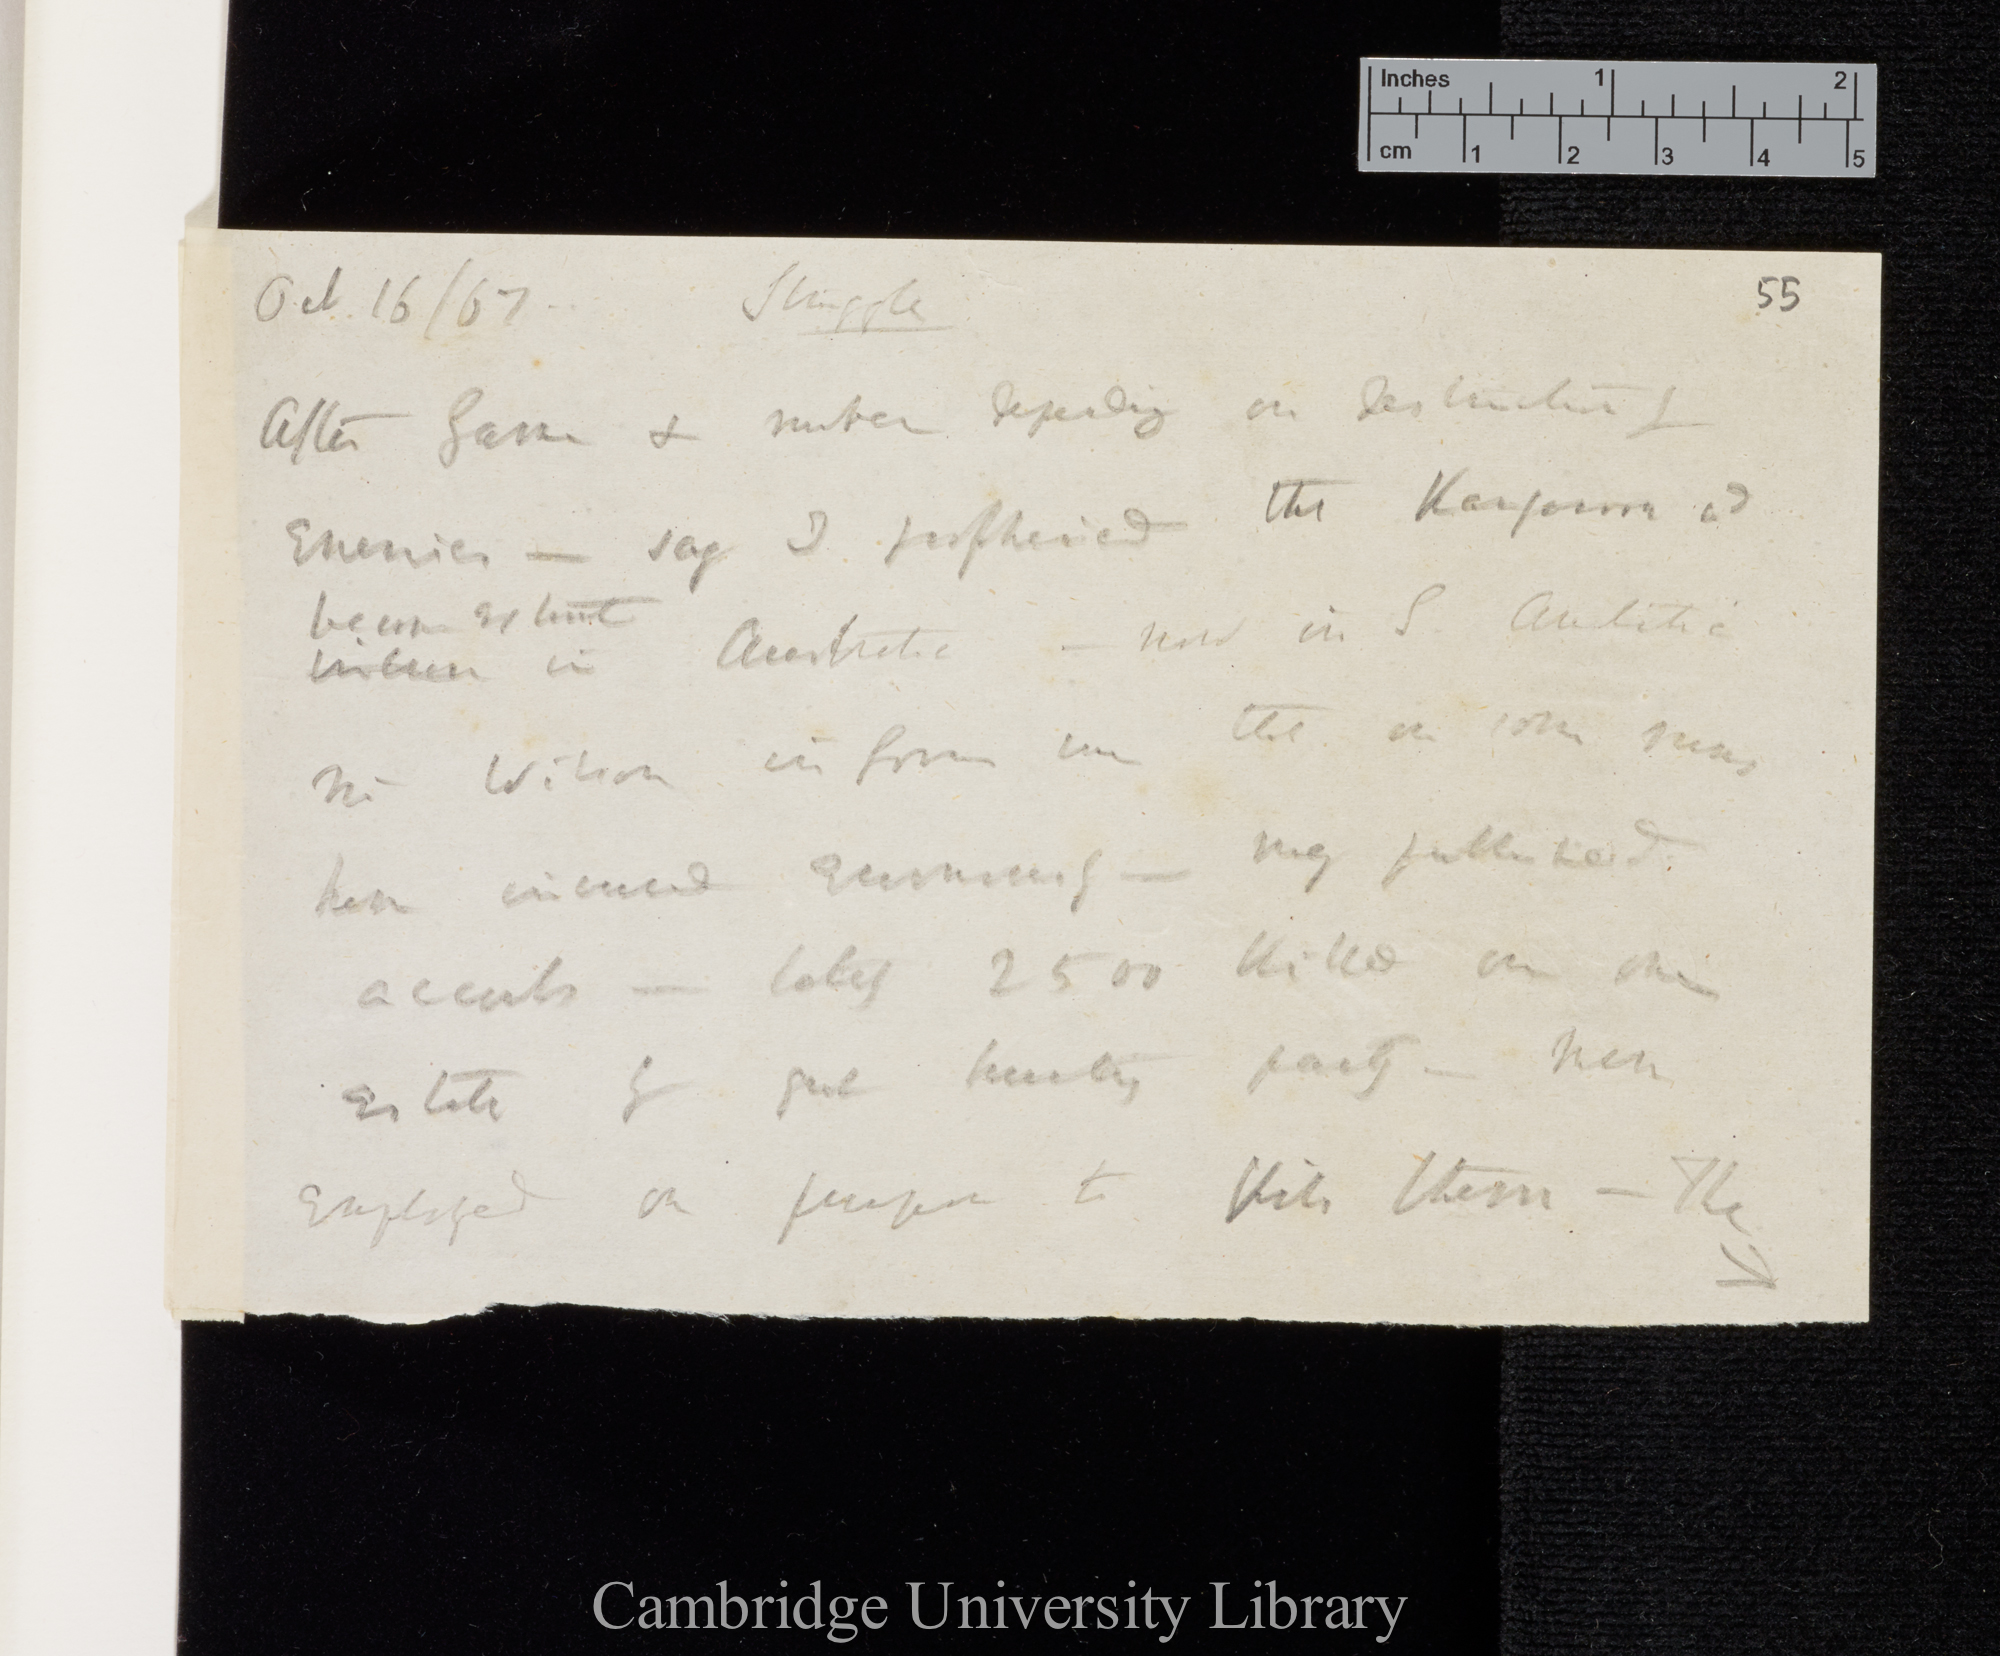 Inches 1 2
cm 1 2 3 4 5
Oct 16/67 Struggle 55
After Game & number depending on destruction of
Enemies — say I prophesied the Kangaroo wd
become extinct
in Australia — now in S. Australia
Mr Wilson inform me that on some runs
have increased enormously — my published
accounts — lately 2500 killed on one
estate by great hunting party — Men
employed on purpose to kill them — The
Cambridge University Library